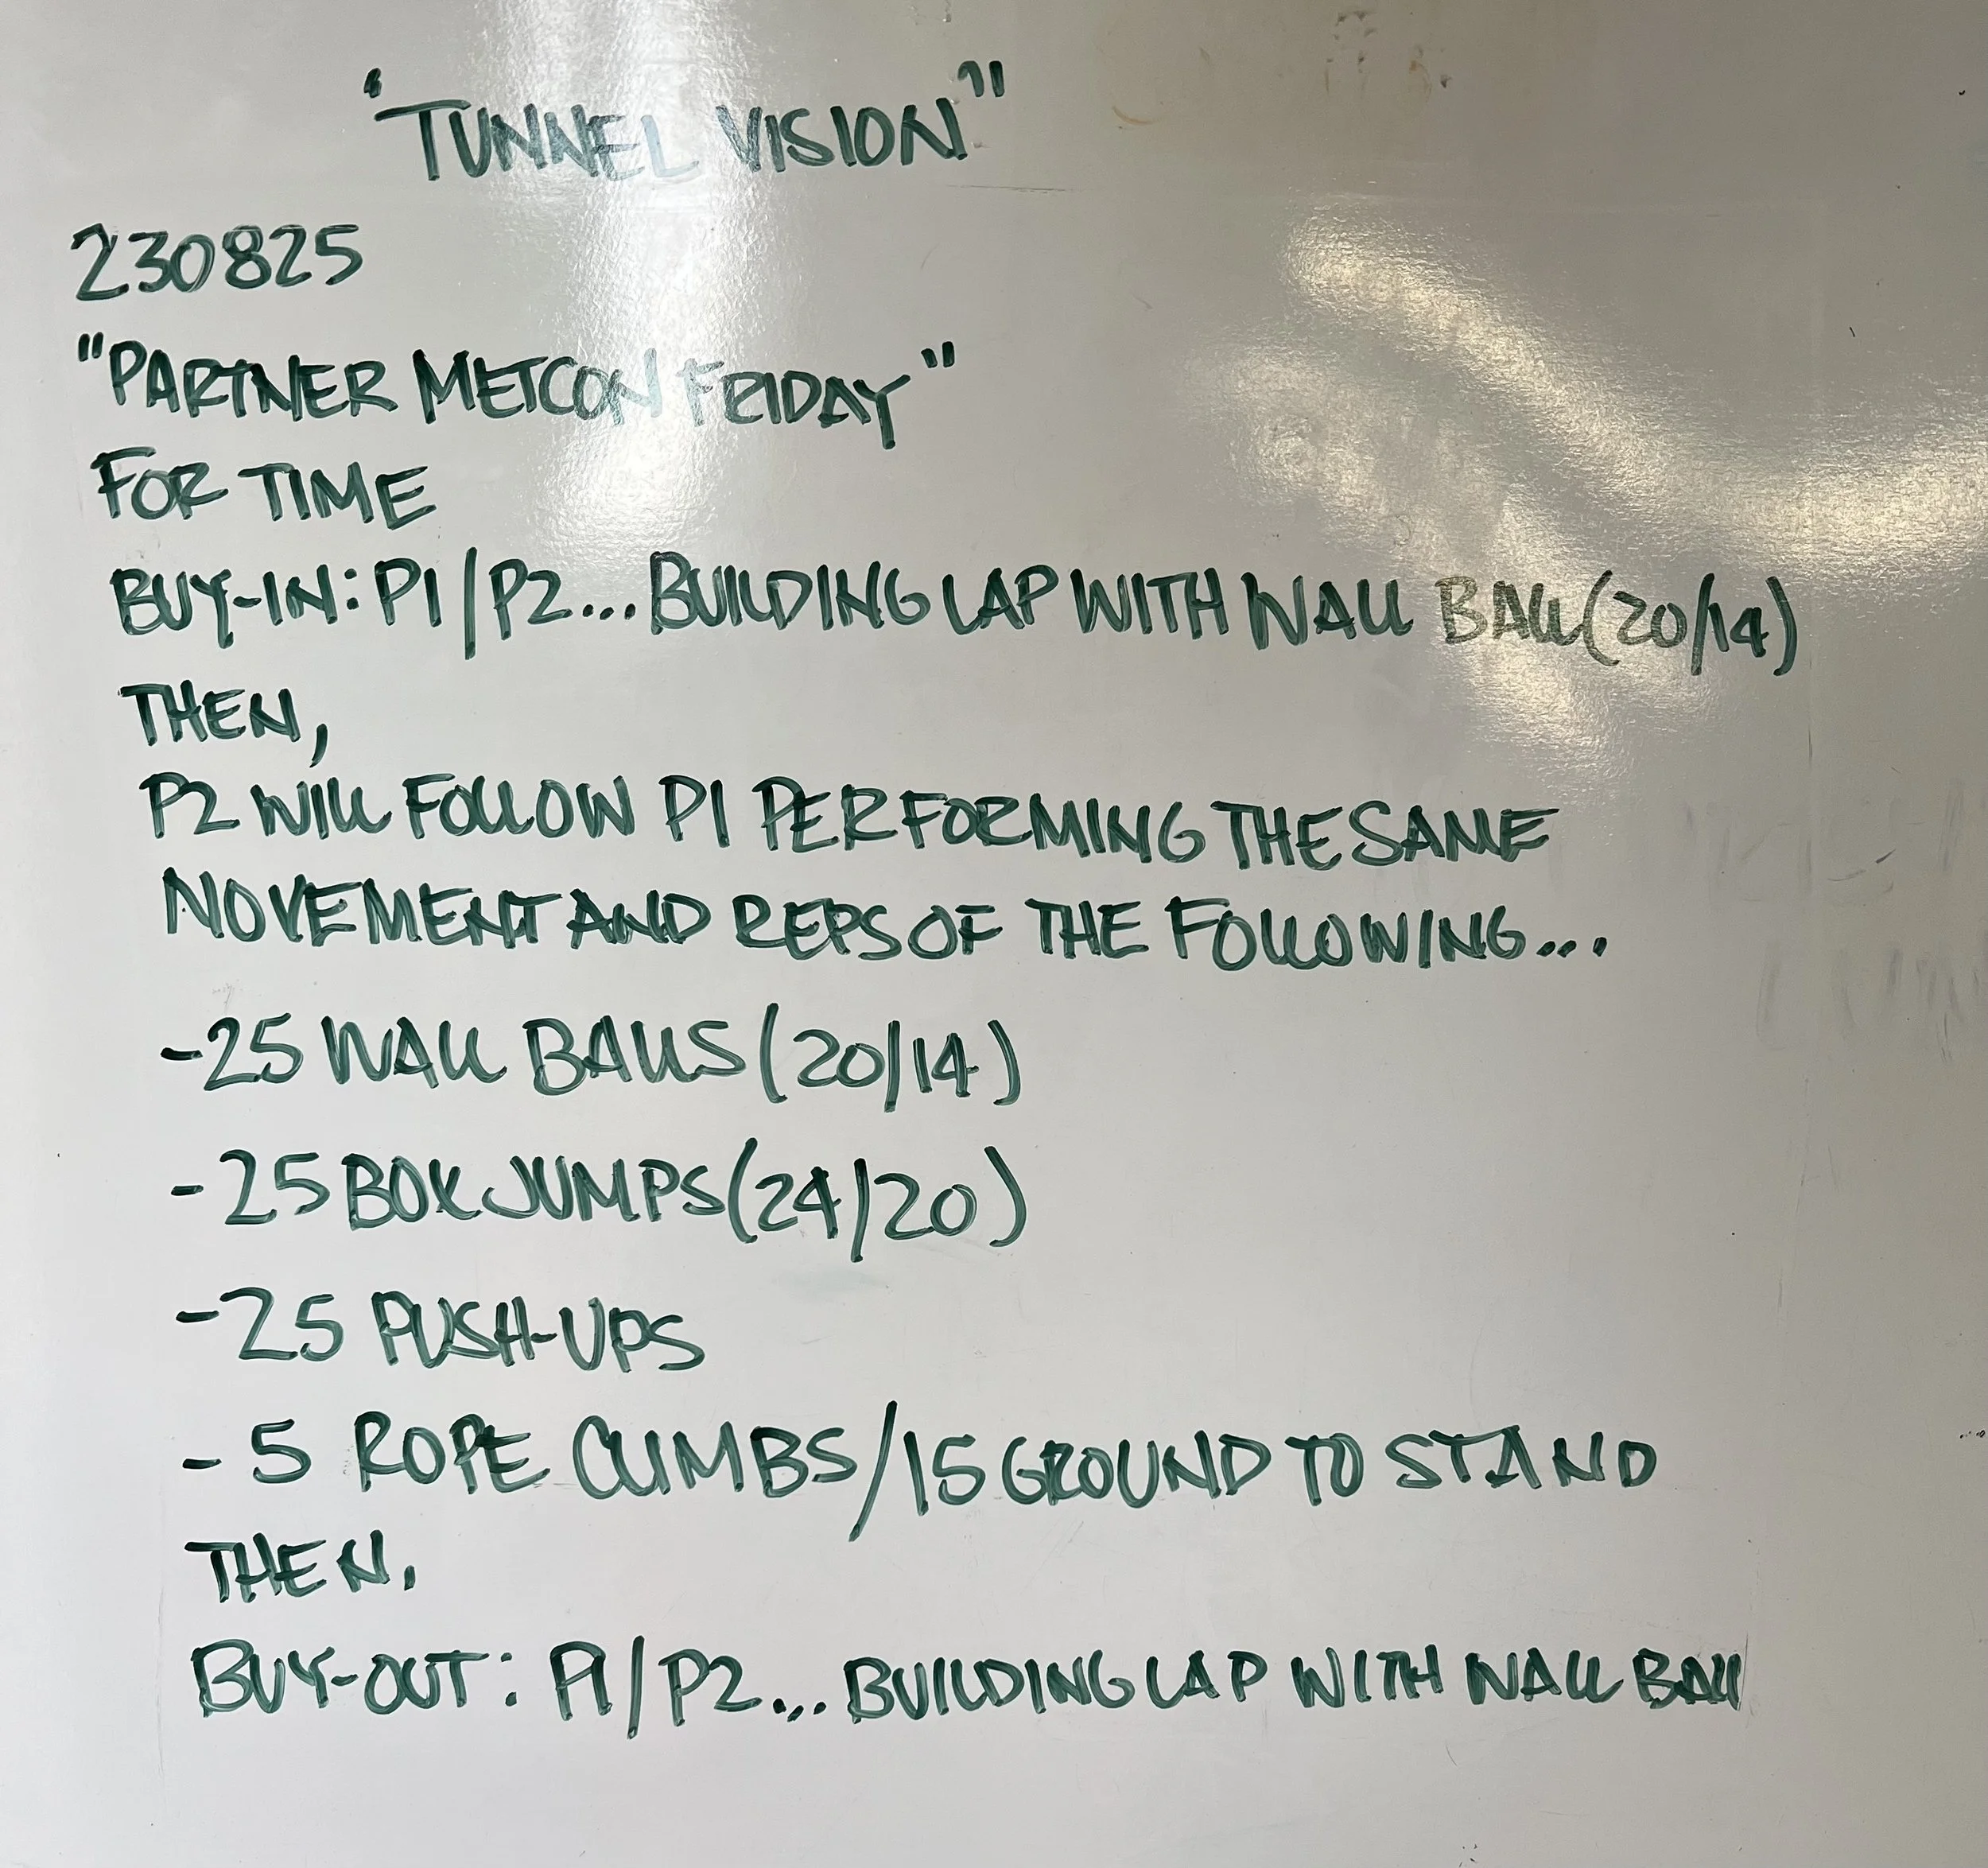 "TUNNEL VISION"
230825
"PARTNER METCON FRIDAY"
FOR TIME
BUY-IN: P1/P2... BUILDING LAP WITH WALL BALL (20/14)
THEN,
P2 WILL FOLLOW P1 PERFORMING THE SAME
MOVEMENT AND REPS OF THE FOLLOWING...
-25 WALL BALLS (20/14)
-25 BOX JUMPS (24/20)
-25 PUSH-UPS
-5 ROPE CLIMBS/15 GROUND TO STAND
THEN,
BUY-OUT: P1/P2... BUILDING LAP WITH WALL BALL